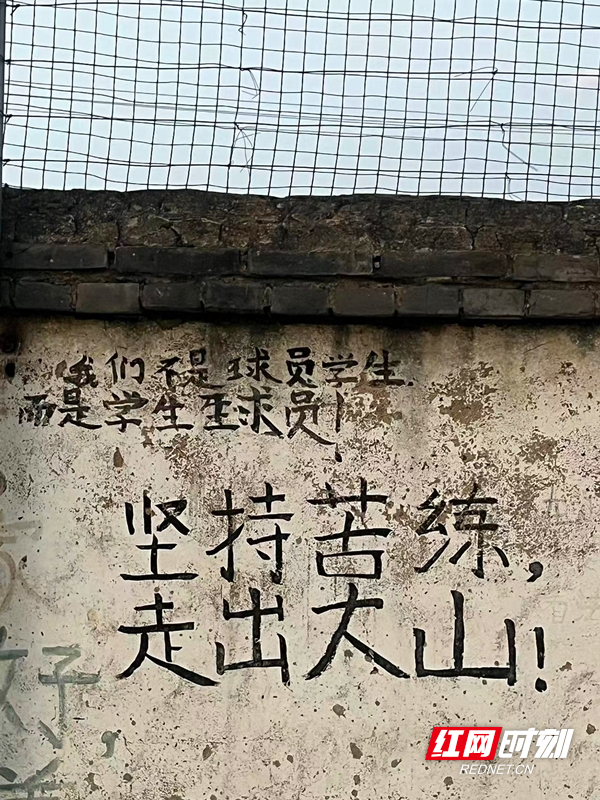 我们不是球员学生.
而是学生球员!
坚持苦练,
走出大山!
好,
红网时刻
REDNET.CN